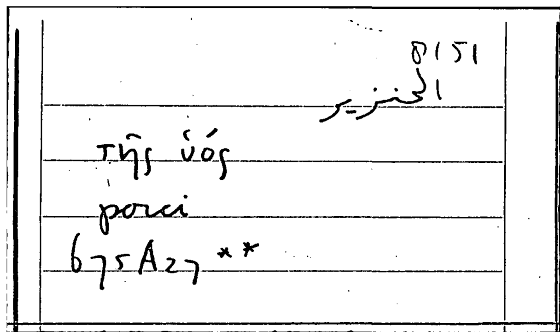 8151
الخنزير
τῆς ὑός
porci
675A27 **